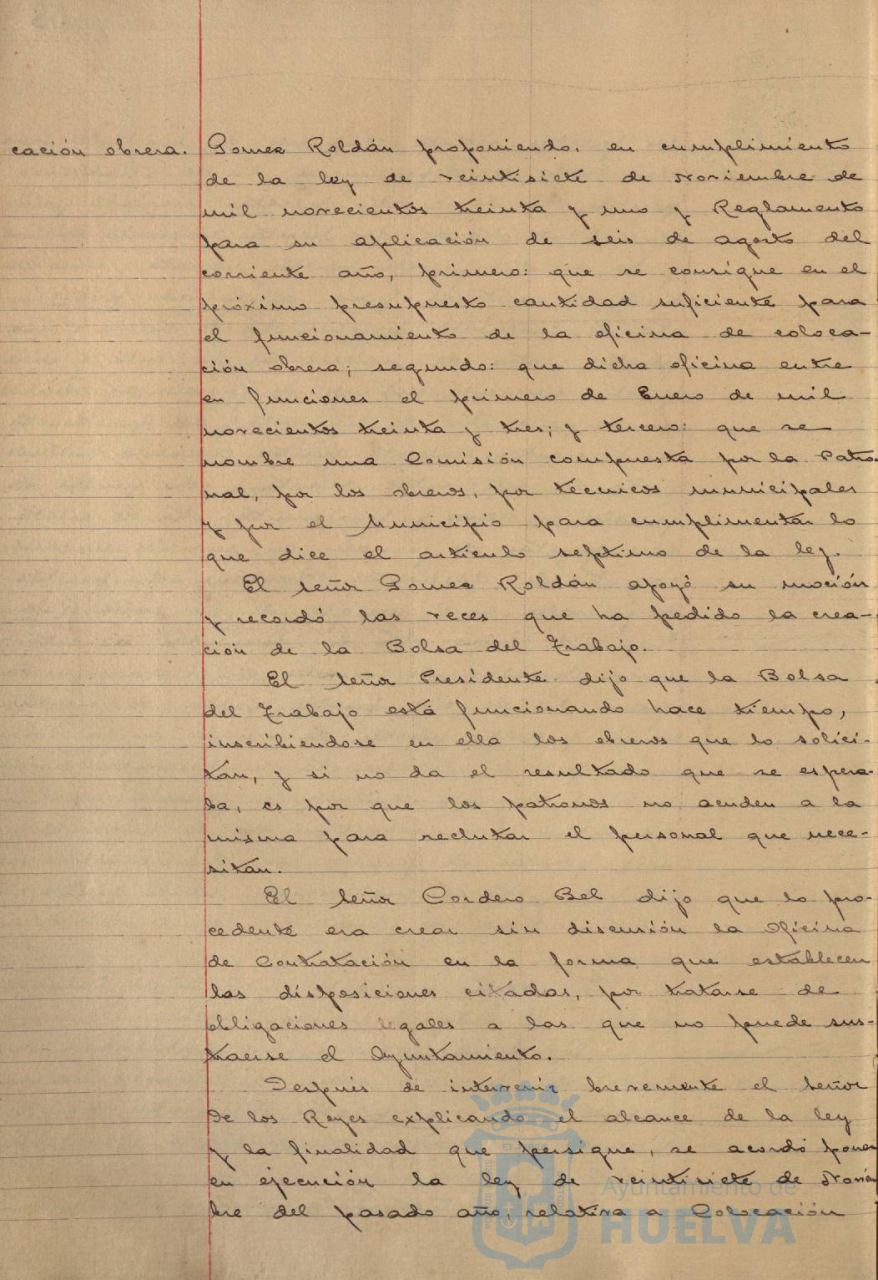 cación obrera.
Gomez Roldán proponiendo, en cumplimiento
de la ley de veintisiete de Noviembre de
mil novecientos treinta y uno y Reglamento
para su aplicación de seis de agosto del
corriente año, primero: que se consigne en el
próximo presupuesto cantidad suficiente para
el funcionamiento de la oficina de coloca-
ción obrera; segundo: que dicha oficina entre
en funciones el primero de Enero de mil
novecientos treinta y tres; y tercero: que se
nombre una Comisión compuesta por la Patro-
nal, por los obreros, por técnicos municipales
y por el Municipio para cumplimentar lo
que dice el artículo septimo de la ley.
El señor Gomez Roldán apoyó su moción
y recordó las veces que ha pedido la crea-
ción de la Bolsa del Trabajo.
El señor Presidente dijo que la Bolsa
del Trabajo está funcionando hace tiempo,
inscribiendose en ella los obreros que lo solici-
tan, y si no da el resultado que se espera-
ba, es por que los patronos no acuden a la
misma para reclutar el personal que nece-
sitan.
El señor Cordero Bel dijo que lo pro-
cedente era crear sin discusión la Oficina
de Contratación en la forma que establecen
las disposiciones citadas, por tratarse de
obligaciones legales a las que no puede sus-
traerse el Ayuntamiento.
Después de intervenir brevemente el señor
de los Reyes explicando el alcance de la ley
y la finalidad que persigue, se acordó poner
en ejecución la ley de veintisiete de Noviem
bre del pasado año, relativa a Colocación
Ayuntamiento de
HUELVA